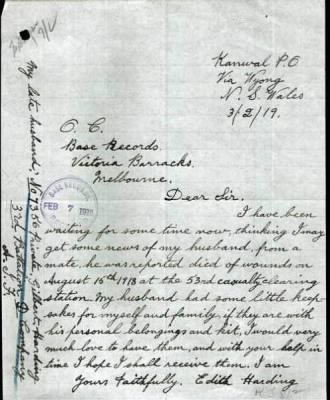 Kanwal P.O
Via Wyong
N. S. Wales
3/2/19.
O. C.
Base Records.
Victoria Barracks.
Melbourne.
Dear Sir.
I have been
waiting for some time now, thinking I may
get some news of my husband, from a
mate, he was reported died of wounds on
August 15th 1918 at the 53rd casualty clearing
station. My husband had some little keep
sakes for myself and family, if they are with
his personal belongings and kit, I would very
much love to have them, and with your help in
time I hope I shall receive them. I am
Yours Faithfully. Edith Harding
My late husband; No 7356 Private Gilbert Harding
3rd Battalion D Company
A. I. F.
BASE RECORDS
FEB 7 1919